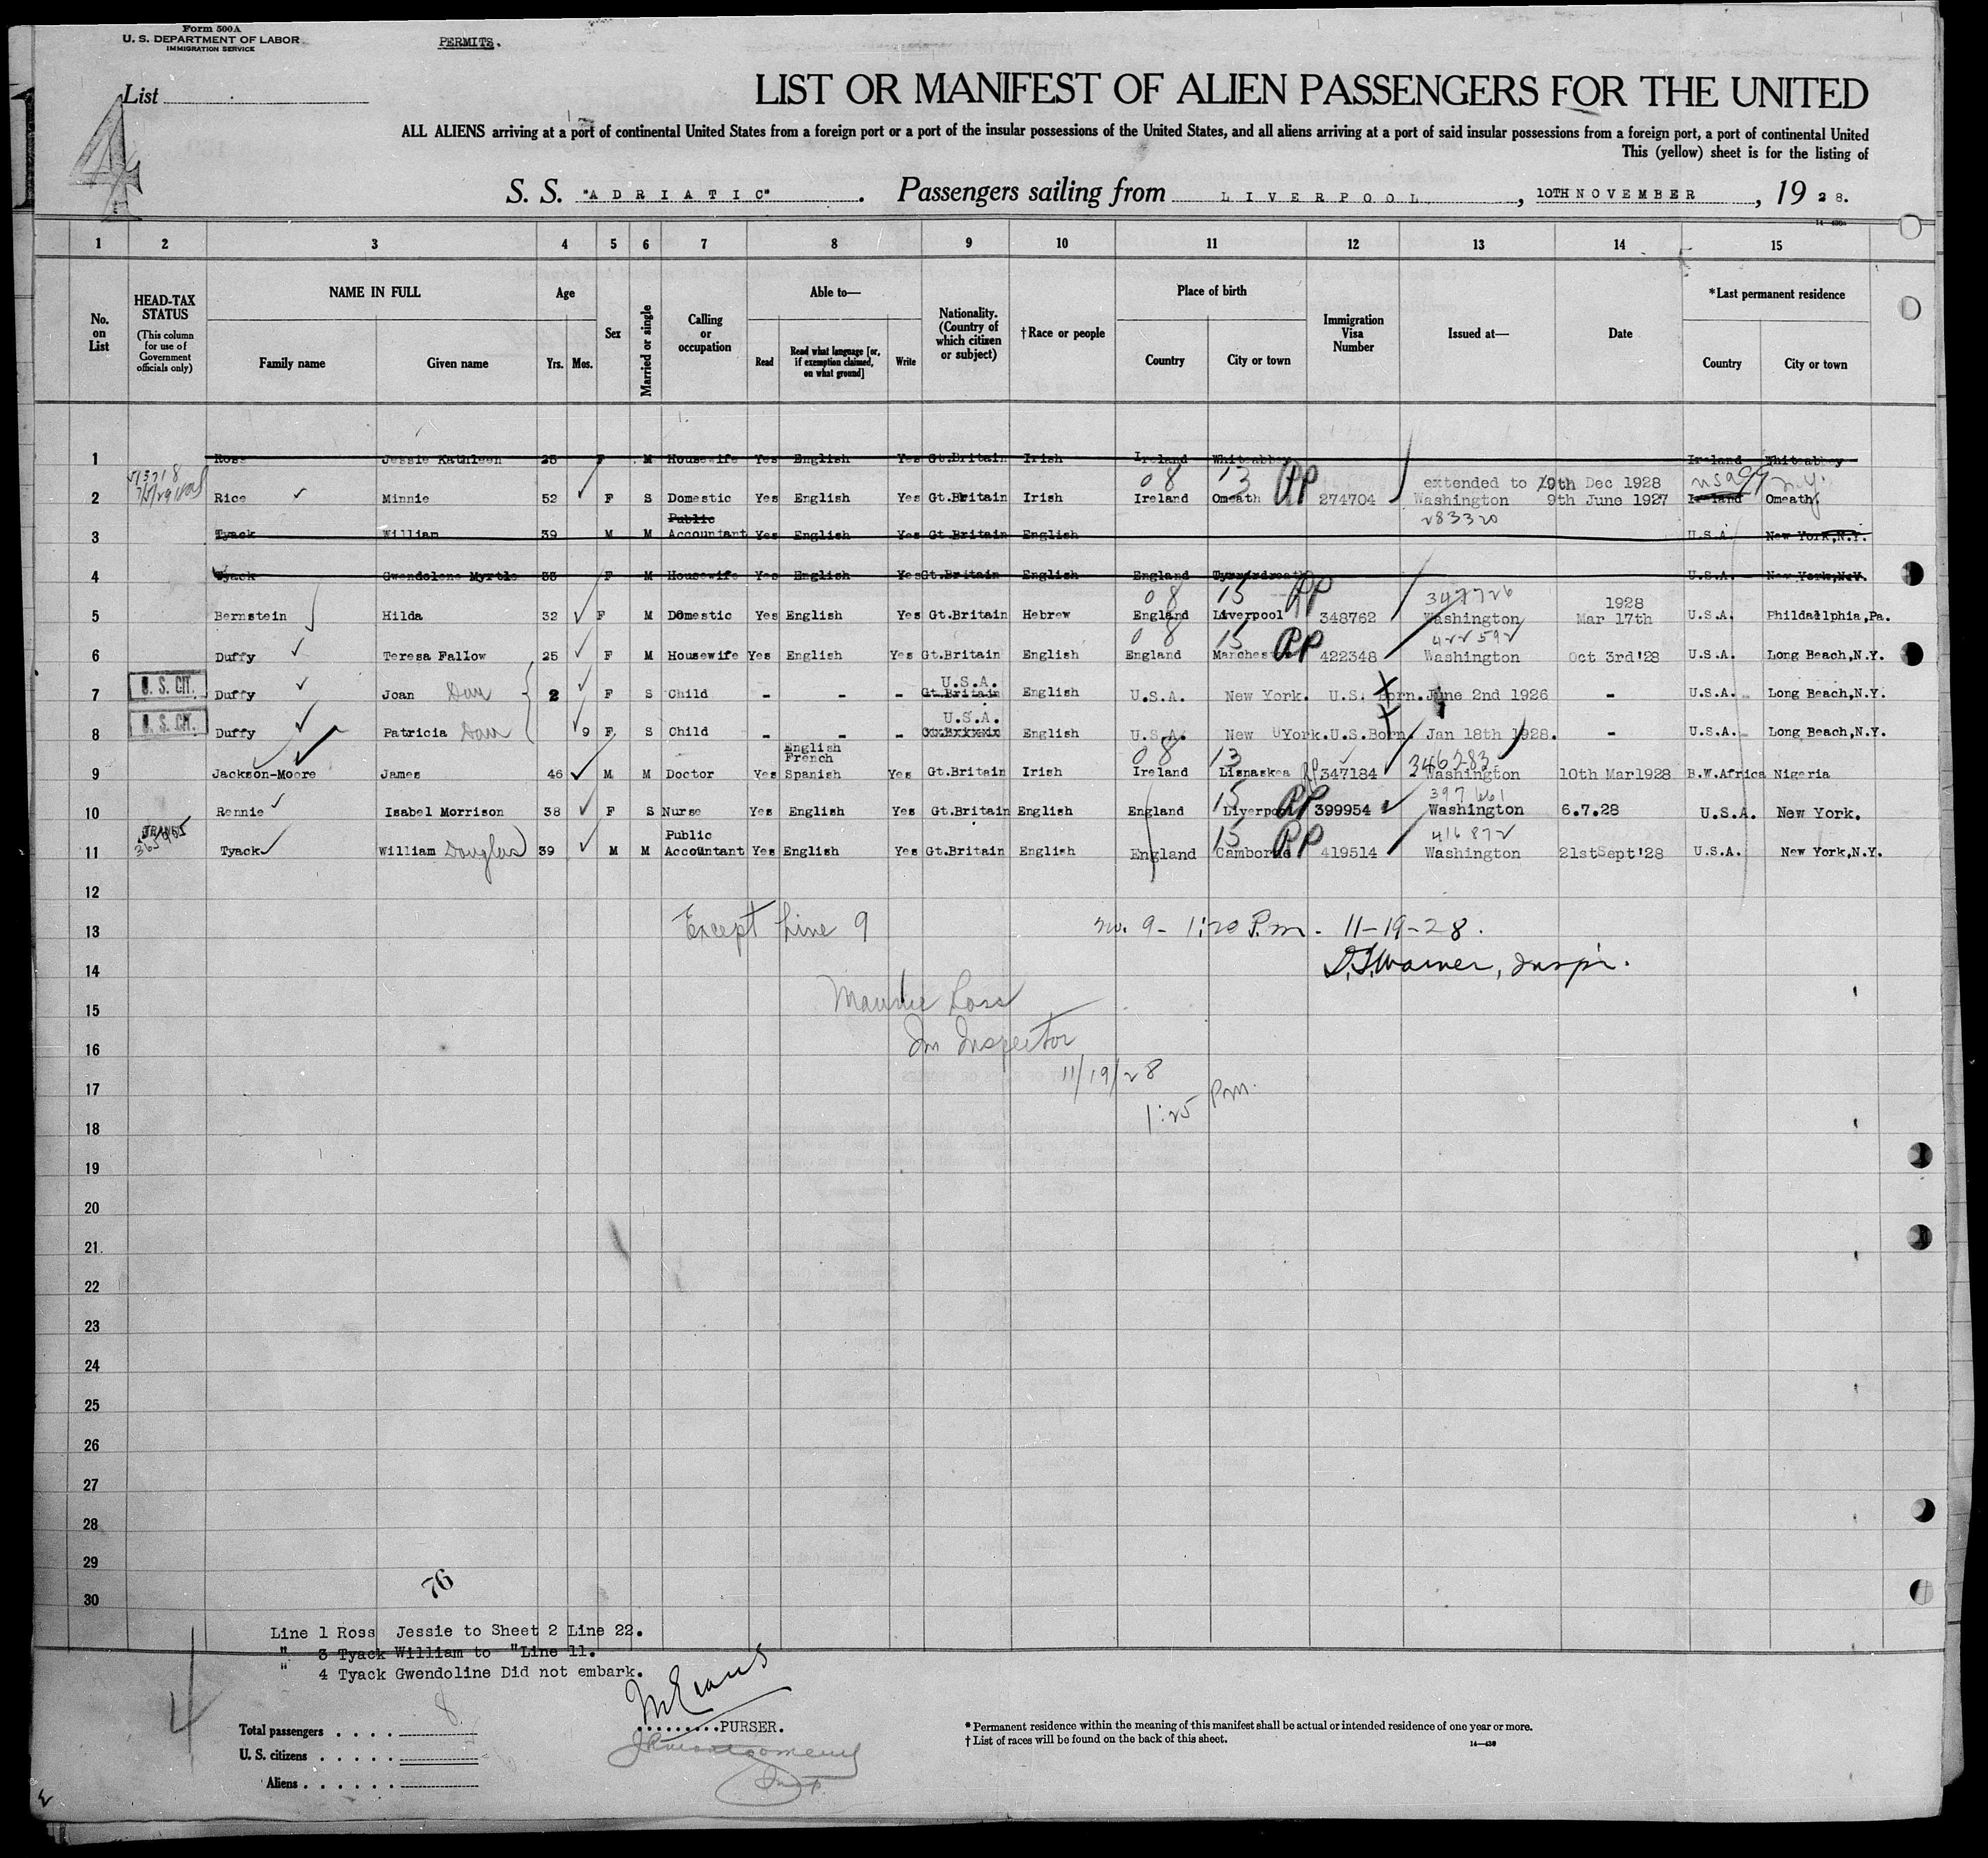 Form 500A
U. S. DEPARTMENT OF LABOR
IMMIGRATION SERVICE
PERMITS.
List
4
LIST OR MANIFEST OF ALIEN PASSENGERS FOR THE UNITED
ALL ALIENS arriving at a port of continental United States from a foreign port or a port of the insular possessions of the United States, and all aliens arriving at a port of said insular possessions from a foreign port, a port of continental United
This (yellow) sheet is for the listing of
S. S. "ADRIATIC". Passengers sailing from LIVERPOOL, 10TH NOVEMBER, 1928.
1 2 3 4 5 6 7 8 9 10 11 12 13 14 15
No. on List
HEAD-TAX STATUS
(This column for use of Government officials only)
NAME IN FULL
Family name Given name
Age
Yrs. Mos.
Sex
Married or single
Calling or occupation
Able to—
Read Read what language [or, if exemption claimed, on what ground] Write
Nationality. (Country of which citizen or subject)
†Race or people
Place of birth
Country City or town
Immigration Visa Number
Issued at—
Date
*Last permanent residence
Country City or town
1 Ross Jessie Kathleen 25 F M Housewife Yes English Yes Gt.Britain Irish Ireland Whiteabbey Ireland Whiteabbey
08 13 PP extended to 10th Dec 1928
2 Rice Minnie 52 F S Domestic Yes English Yes Gt.Britain Irish Ireland Omeath 274704 Washington 9th June 1927 Ireland Omeath
283320
Public
3 Tyack William 39 M M Accountant Yes English Yes Gt.Britain English U.S.A. New York,N.Y.
4 Tyack Gwendolene Myrtle 33 F M Housewife Yes English Yes Gt.Britain English England U.S.A. New York,N.Y.
08 15 PP 347726 1928
5 Bernstein Hilda 32 F M Domestic Yes English Yes Gt.Britain Hebrew England Liverpool 348762 Washington Mar 17th U.S.A. Phildaelphia,Pa.
08 15 PP 422592
6 Duffy Teresa Fallow 25 F M Housewife Yes English Yes Gt.Britain English England Manchester 422348 Washington Oct 3rd'28 U.S.A. Long Beach,N.Y.
U. S. CIT.
U.S.A.
7 Duffy Joan 2 F S Child - - - Gt.Britain English U.S.A. New York. U.S. Born. June 2nd 1926 - U.S.A. Long Beach,N.Y.
U. S. CIT.
U.S.A.
8 Duffy Patricia 9 F S Child - - - English U.S.A. New York.U.S.Born. Jan 18th 1928. - U.S.A. Long Beach,N.Y.
English
French
08 13
9 Jackson-Moore James 46 M M Doctor Yes Spanish Yes Gt.Britain Irish Ireland Lisnaskea 347184 Washington 10th Mar1928 B.W.Africa Nigeria
15 PP 397661
10 Rennie Isabel Morrison 38 F S Nurse Yes English Yes Gt.Britain English England Liverpool 399954 Washington 6.7.28 U.S.A. New York.
Public 15 PP 416872
11 Tyack William Douglas 39 M M Accountant Yes English Yes Gt.Britain English England Camborne 419514 Washington 21stSept'28 U.S.A. New York,N.Y.
12
13 Except Line 9 no. 9 - 1:20 P.m. 11-19-28.
14 Warner, Inspr.
15
16 Im Inspector
17 11/19/28
18 1:25 Pm.
19
20
21
22
23
24
25
26
27
28
29
30
76
Line 1 Ross Jessie to Sheet 2 Line 22.
" 3 Tyack William to "Line 11.
" 4 Tyack Gwendoline Did not embark.
4
Total passengers . . . . 8
U. S. citizens . . . . .
Aliens . . . . . .
.........PURSER.
* Permanent residence within the meaning of this manifest shall be actual or intended residence of one year or more.
† List of races will be found on the back of this sheet.
14—430